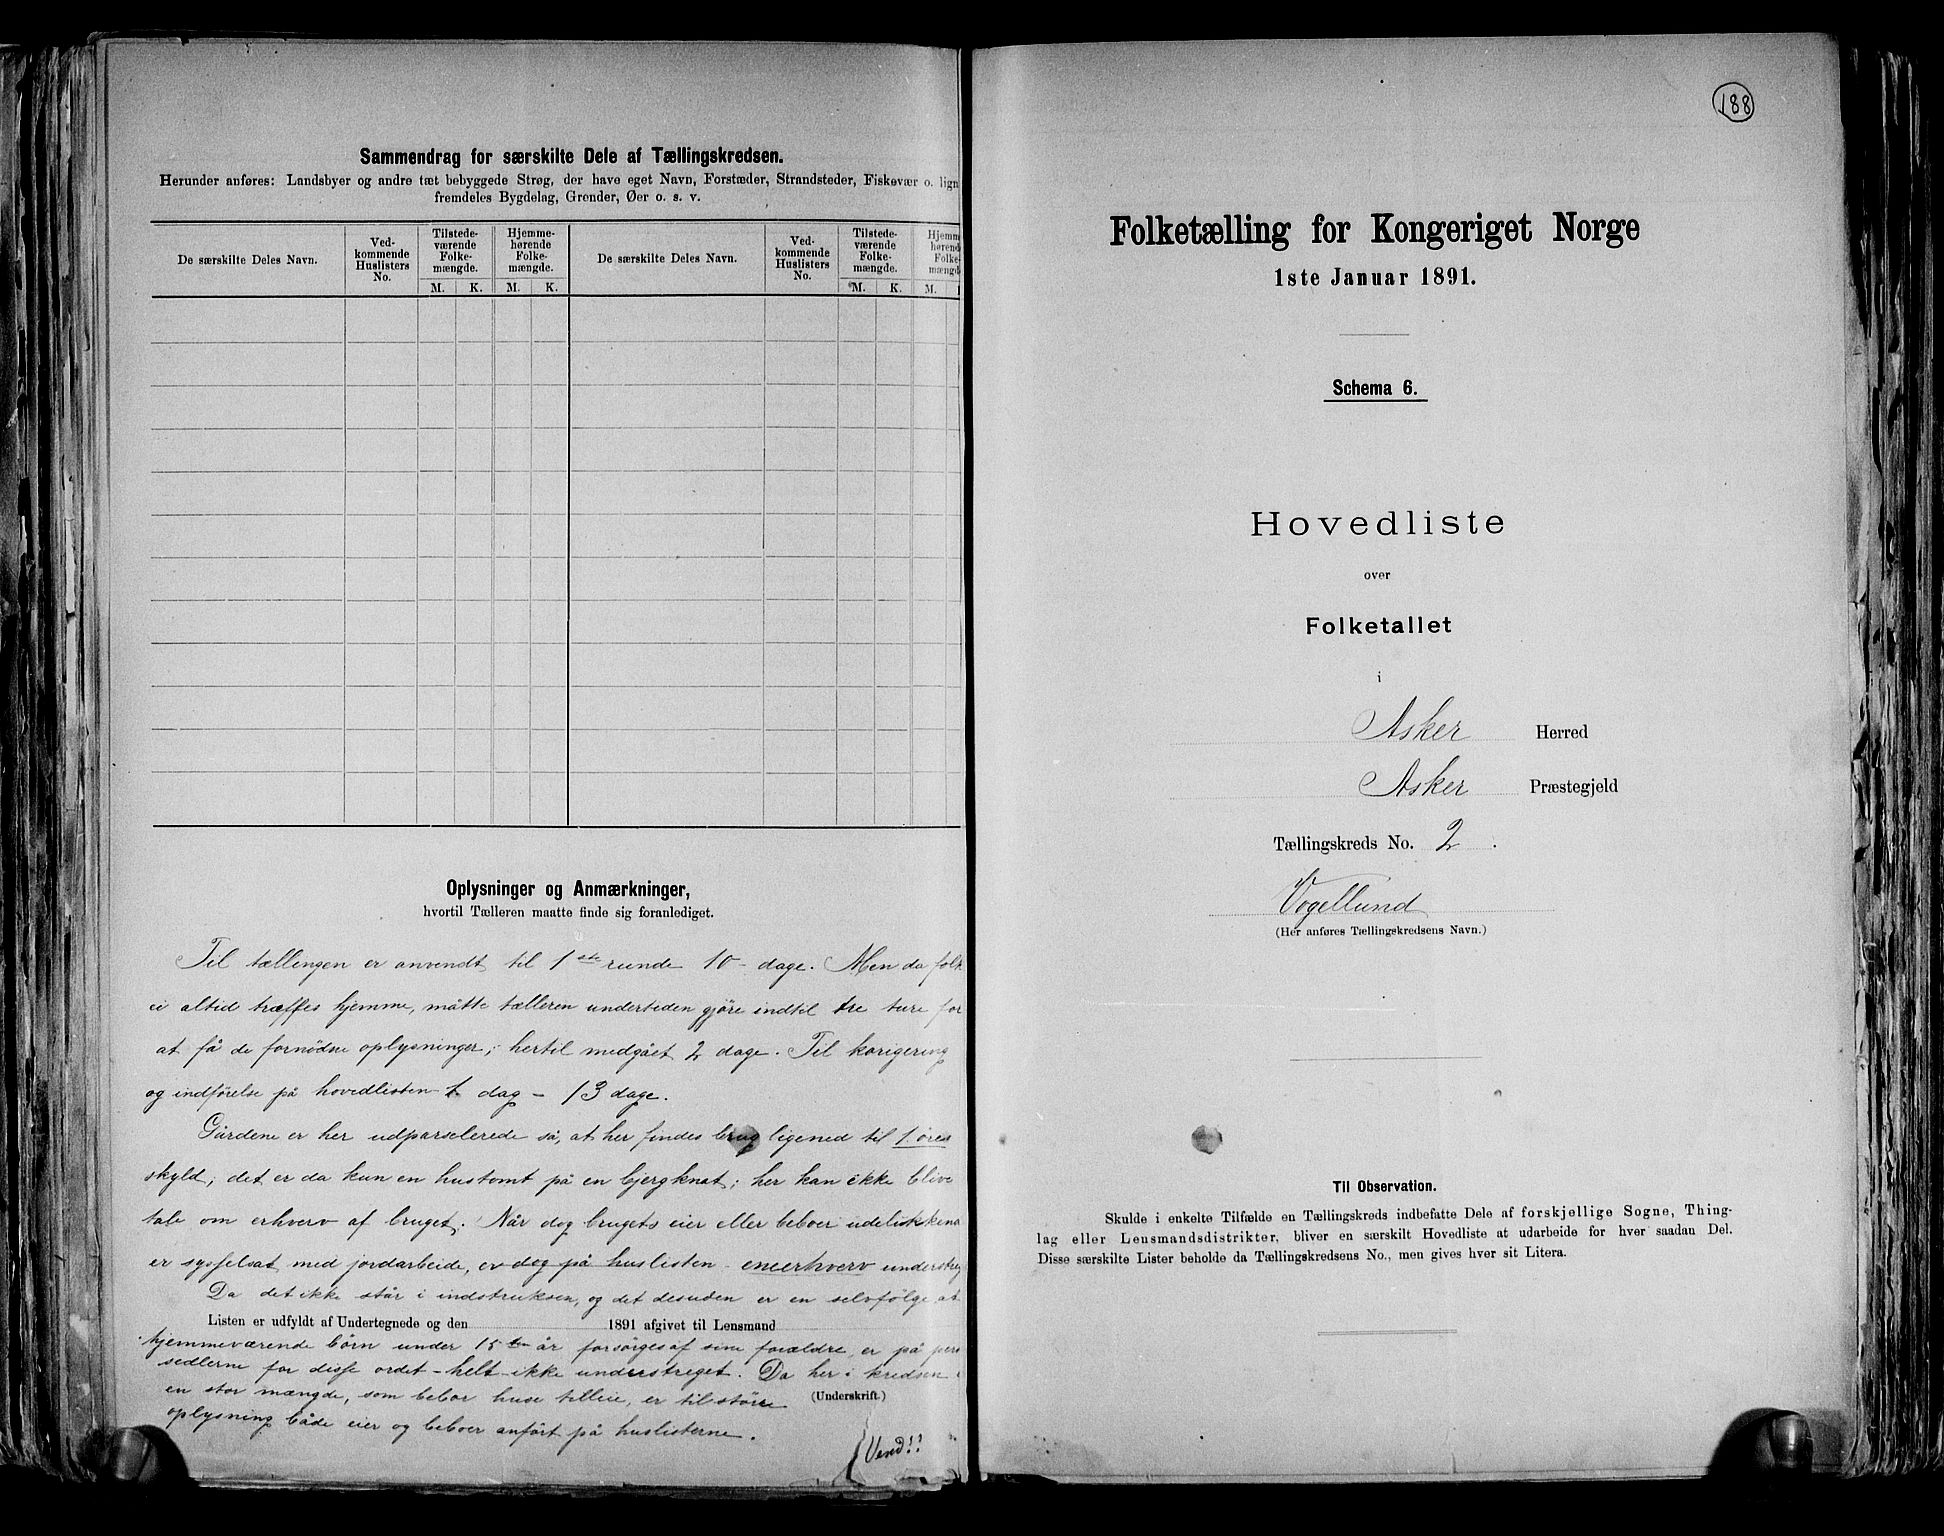 Sammendrag for særskilte Dele af Tællingskredsen.
Herunder anføres: Landsbyer og andre tæt bebyggede Strøg, der have eget Navn, Forstæder, Strandsteder, Fiskevær o. lign
fremdeles Bygdelag, Grender, Øer o. s. v.
De særskilte Deles Navn.
Ved-
kommende
Huslisters
No.
Tilstede-
værende
Folke-
mængde.
M. K.
Hjemme-
hørende
Folke-
mængde.
M. K.
De særskilte Deles Navn.
Ved-
kommende
Huslisters
No.
Tilstede-
værende
Folke-
mængde.
M. K.
Hjemm
hørend
Folke
mængd
M.
Oplysninger og Anmærkninger,
hvortil Tælleren maatte finde sig foranlediget.
Til tællingen er anvendt til 1ste runde 10 dage. Men da folk
ei altid træffes hjemme, måtte tælleren undertiden gjöre indtil tre ture for
at få de fornödne oplysninger; hertil medgået 2 dage. Til korigering
og indförelse på hovedlisten 1 dag – 13 dage.
Gårdene er her udparselerede så, at her findes brug ligened til 1 öres
skyld; det er da kun en hustomt på en bjergknat; her kan ikke blive
tale om erhverv af bruget. Når dog brugets eier eller beboer udelukkend
er sysselsat med jordarbeide, er dog på huslisten enerhverv understreg
Da det ikke står i indstruksen, og det desuden er en selvfölge at
Listen er udfyldt af Undertegnede og den 1891 afgivet til Lensmand
hjemmeværende börn under 15 år forsörges af sine forældre, er på per
sedlerne for disse ordet – helt ikke understreget. Da her i kredsen
en stor mængde, som bebor huse tilleie, er til störe
(Underskrift.)
oplysning både eier og beboer anfört på huslisterne.
Vend!!
188
Folketælling for Kongeriget Norge
1ste Januar 1891.
Schema 6.
Hovedliste
over
Folketallet
i
Asker Herred
Asker Præstegjeld
Tællingskreds No. 2.
Vogellund
(Her anføres Tællingskredsens Navn.)
Til Observation.
Skulde i enkelte Tilfælde en Tællingskreds indbefatte Dele af forskjellige Sogne, Thing-
lag eller Lensmandsdistrikter, bliver en særskilt Hovedliste at udarbeide for hver saadan Del.
Disse særskilte Lister beholde da Tællingskredsens No., men gives hver sit Litera.